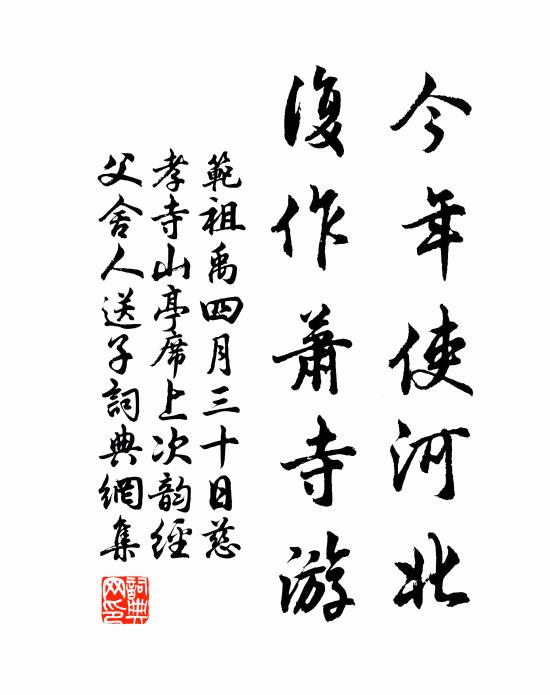 今年使河北
復作蕭寺游
範祖禹四月三十日慈
孝寺山亭席上次韵經
父舍人送子詞典網集
詞典網印